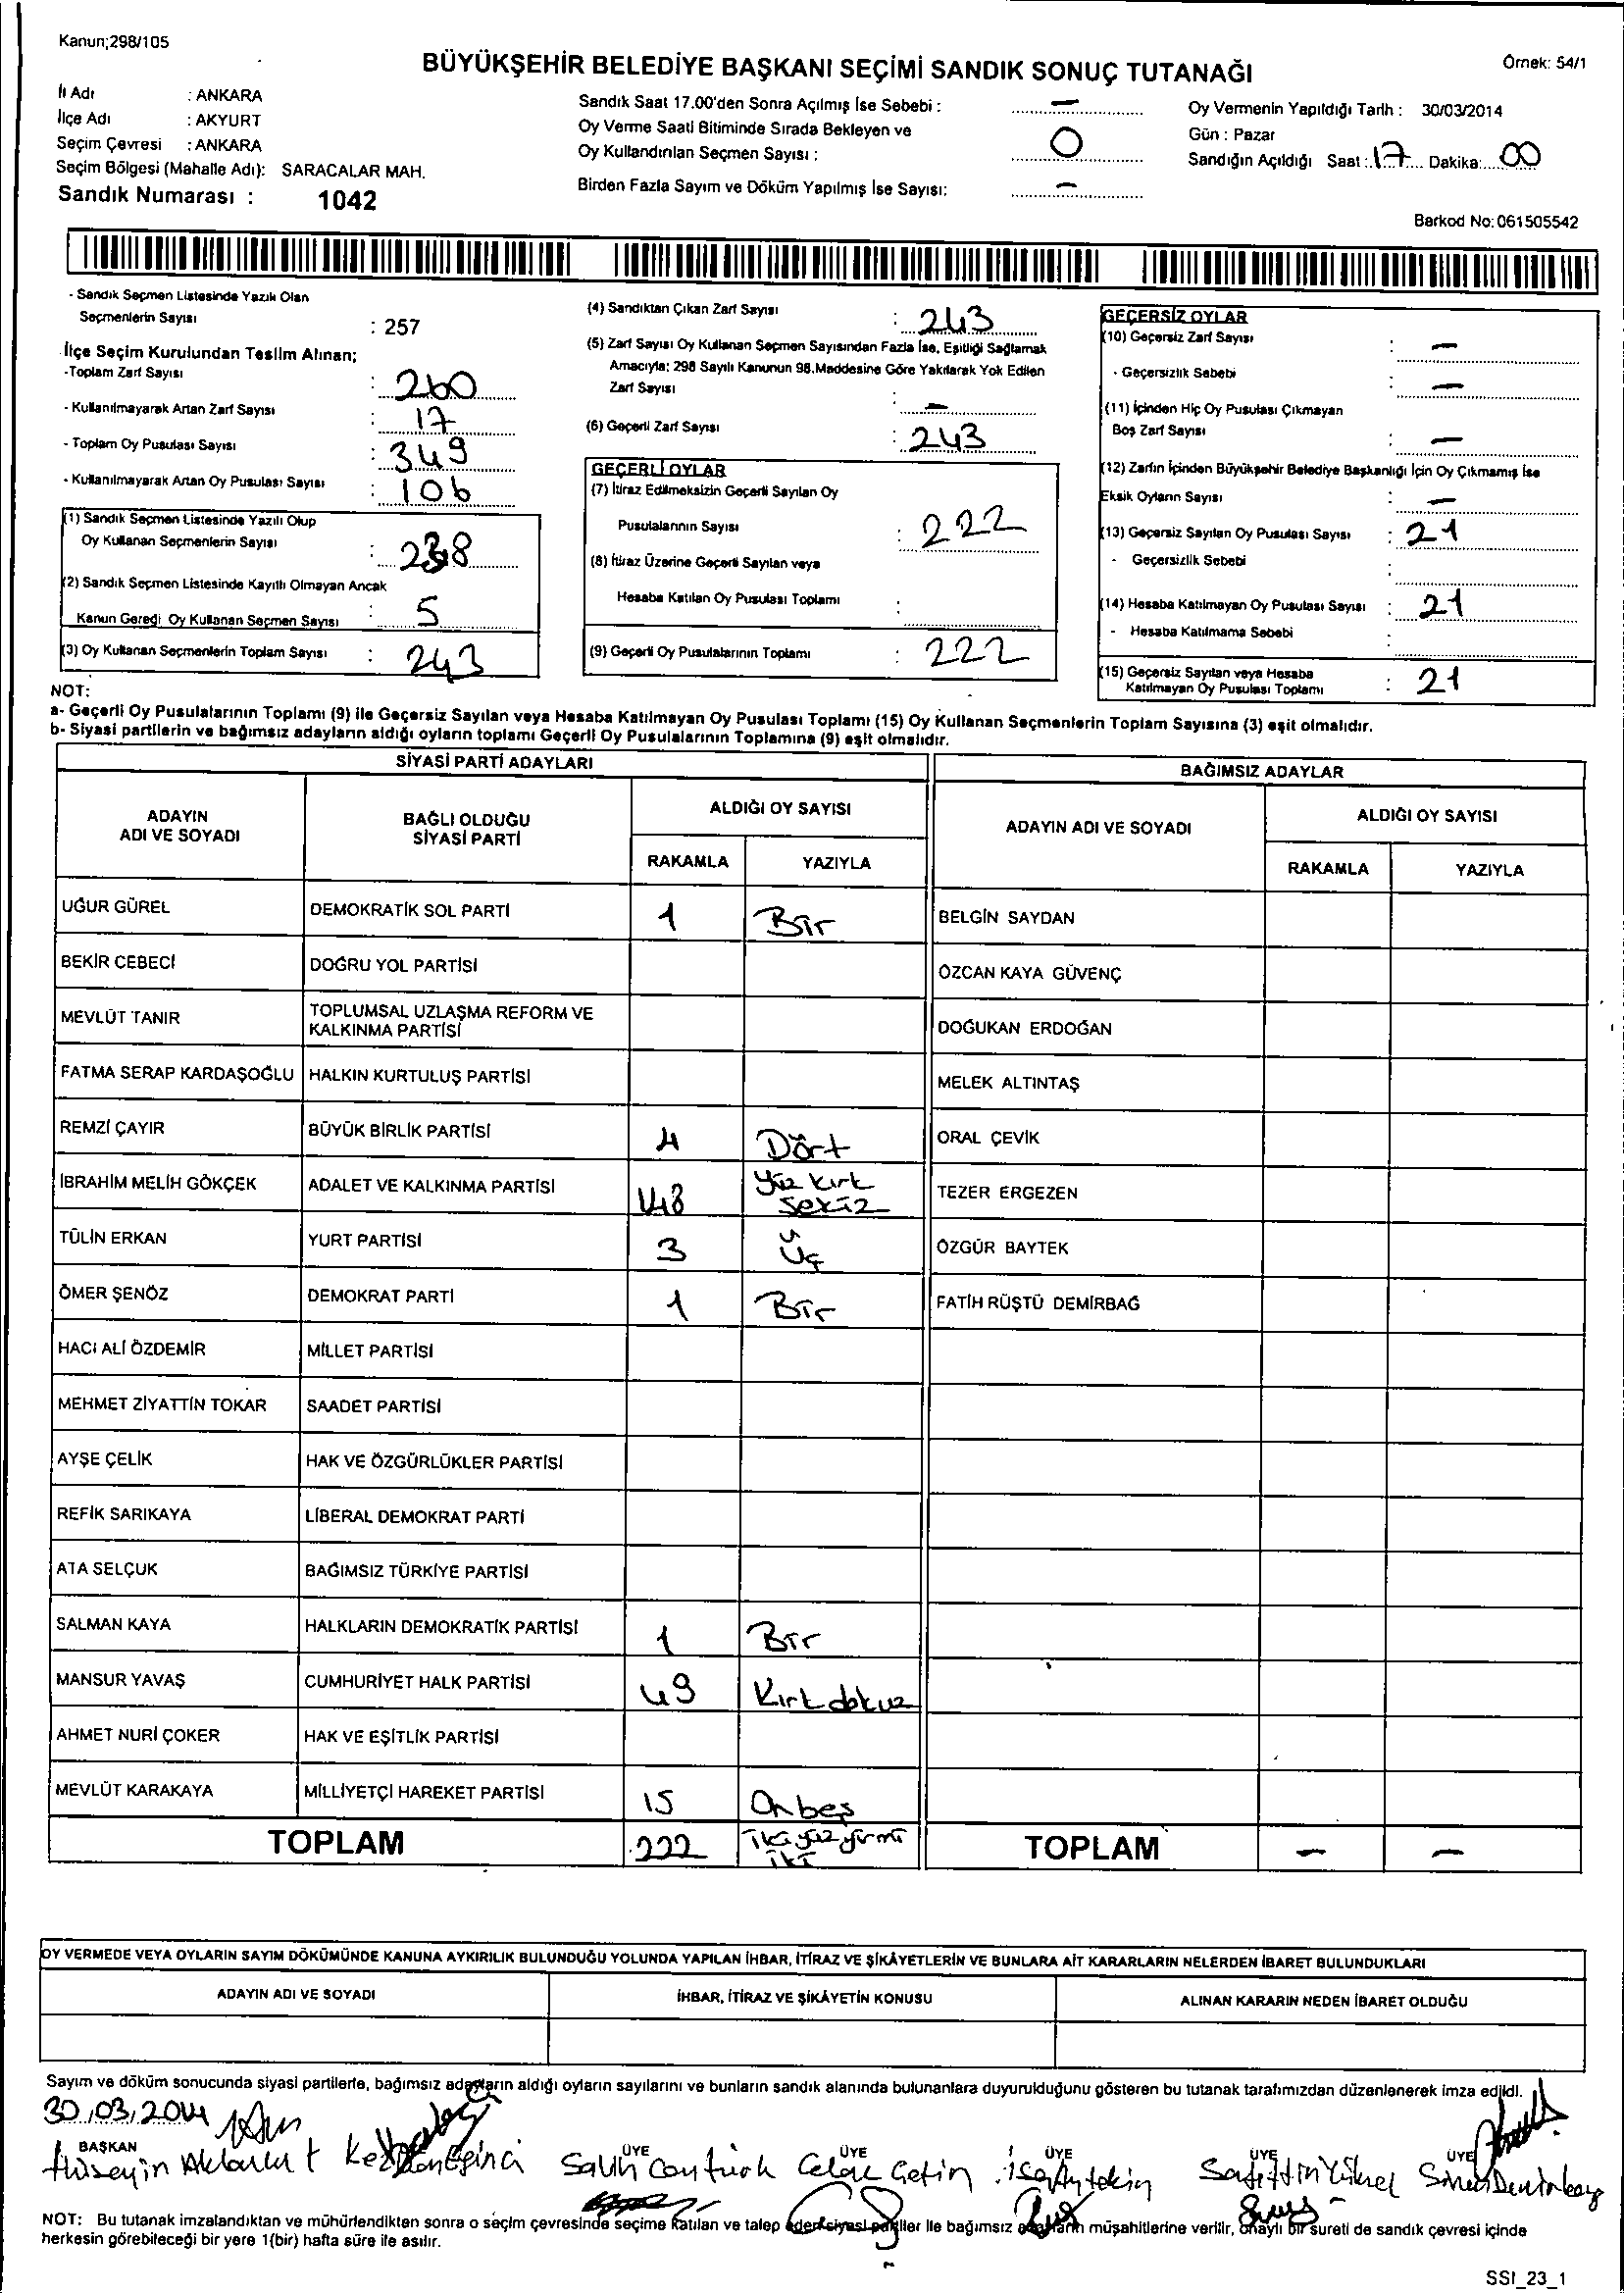 Kanun;298/105
BÜYÜKŞEHİR BELEDİYE BAŞKANI SEÇİMİ SANDIK SONUÇ TUTANAĞI
Örnek: 54/1
İl Adı : ANKARA
İlçe Adı : AKYURT
Seçim Çevresi : ANKARA
Seçim Bölgesi (Mahalle Adı): SARACALAR MAH.
Sandık Numarası : 1042
Sandık Saat 17.00'den Sonra Açılmış İse Sebebi : —
Oy Verme Saati Bitiminde Sırada Bekleyen ve
Oy Kullandırılan Seçmen Sayısı : 0
Birden Fazla Sayım ve Döküm Yapılmış İse Sayısı: —
Oy Vermenin Yapıldığı Tarih : 30/03/2014
Gün : Pazar
Sandığın Açıldığı Saat : 17 Dakika: 00
Barkod No: 061505542
- Sandık Seçmen Listesinde Yazılı Olan
Seçmenlerin Sayısı : 257
İlçe Seçim Kurulundan Teslim Alınan;
-Toplam Zarf Sayısı : 260
- Kullanılmayarak Artan Zarf Sayısı : 17
- Toplam Oy Pusulası Sayısı : 349
- Kullanılmayarak Artan Oy Pusulası Sayısı : 106
(1) Sandık Seçmen Listesinde Yazılı Olup
Oy Kullanan Seçmenlerin Sayısı : 238
(2) Sandık Seçmen Listesinde Kayıtlı Olmayan Ancak
Kanun Gereği Oy Kullanan Seçmen Sayısı : 5
(3) Oy Kullanan Seçmenlerin Toplam Sayısı : 243
(4) Sandıktan Çıkan Zarf Sayısı : 243
(5) Zarf Sayısı Oy Kullanan Seçmen Sayısından Fazla İse, Eşitliği Sağlamak
Amacıyla; 298 Sayılı Kanunun 98.Maddesine Göre Yakılarak Yok Edilen
Zarf Sayısı : —
(6) Geçerli Zarf Sayısı : 243
GEÇERLİ OYLAR
(7) İtiraz Edilmeksizin Geçerli Sayılan Oy
Pusulalarının Sayısı : 222
(8) İtiraz Üzerine Geçerli Sayılan veya
Hesaba Katılan Oy Pusulası Toplamı :
(9) Geçerli Oy Pusulalarının Toplamı : 222
GEÇERSİZ OYLAR
(10) Geçersiz Zarf Sayısı : —
- Geçersizlik Sebebi : —
(11) İçinden Hiç Oy Pusulası Çıkmayan
Boş Zarf Sayısı : —
(12) Zarfın İçinden Büyükşehir Belediye Başkanlığı İçin Oy Çıkmamış İse
Eksik Oyların Sayısı : —
(13) Geçersiz Sayılan Oy Pusulası Sayısı : 21
- Geçersizlik Sebebi :
(14) Hesaba Katılmayan Oy Pusulası Sayısı : 21
- Hesaba Katılmama Sebebi :
(15) Geçersiz Sayılan veya Hesaba
Katılmayan Oy Pusulası Toplamı : 21
NOT:
a- Geçerli Oy Pusulalarının Toplamı (9) ile Geçersiz Sayılan veya Hesaba Katılmayan Oy Pusulası Toplamı (15) Oy Kullanan Seçmenlerin Toplam Sayısına (3) eşit olmalıdır.
b- Siyasi partilerin ve bağımsız adayların aldığı oyların toplamı Geçerli Oy Pusulalarının Toplamına (9) eşit olmalıdır.
SİYASİ PARTİ ADAYLARI
BAĞIMSIZ ADAYLAR
ADAYIN ADI VE SOYADI
BAĞLI OLDUĞU SİYASİ PARTİ
ALDIĞI OY SAYISI
RAKAMLA YAZIYLA
ADAYIN ADI VE SOYADI
ALDIĞI OY SAYISI
RAKAMLA YAZIYLA
UĞUR GÜREL DEMOKRATİK SOL PARTİ 1 Bir BELGİN SAYDAN
BEKİR CEBECİ DOĞRU YOL PARTİSİ ÖZCAN KAYA GÜVENÇ
MEVLÜT TANIR TOPLUMSAL UZLAŞMA REFORM VE KALKINMA PARTİSİ DOĞUKAN ERDOĞAN
FATMA SERAP KARDAŞOĞLU HALKIN KURTULUŞ PARTİSİ MELEK ALTINTAŞ
REMZİ ÇAYIR BÜYÜK BİRLİK PARTİSİ 4 Dört ORAL ÇEVİK
İBRAHİM MELİH GÖKÇEK ADALET VE KALKINMA PARTİSİ 148 Yüz kırk sekiz TEZER ERGEZEN
TÜLİN ERKAN YURT PARTİSİ 3 Üç ÖZGÜR BAYTEK
ÖMER ŞENÖZ DEMOKRAT PARTİ 1 Bir FATİH RÜŞTÜ DEMİRBAĞ
HACI ALİ ÖZDEMİR MİLLET PARTİSİ
MEHMET ZİYATTİN TOKAR SAADET PARTİSİ
AYŞE ÇELİK HAK VE ÖZGÜRLÜKLER PARTİSİ
REFİK SARIKAYA LİBERAL DEMOKRAT PARTİ
ATA SELÇUK BAĞIMSIZ TÜRKİYE PARTİSİ
SALMAN KAYA HALKLARIN DEMOKRATİK PARTİSİ 1 Bir
MANSUR YAVAŞ CUMHURİYET HALK PARTİSİ 49 Kırk dokuz
AHMET NURİ ÇOKER HAK VE EŞİTLİK PARTİSİ
MEVLÜT KARAKAYA MİLLİYETÇİ HAREKET PARTİSİ 15 Onbeş
TOPLAM 222 İki yüz yirmi iki TOPLAM — —
OY VERMEDE VEYA OYLARIN SAYIM DÖKÜMÜNDE KANUNA AYKIRILIK BULUNDUĞU YOLUNDA YAPILAN İHBAR, İTİRAZ VE ŞİKÂYETLERİN VE BUNLARA AİT KARARLARIN NELERDEN İBARET BULUNDUKLARI
ADAYIN ADI VE SOYADI İHBAR, İTİRAZ VE ŞİKÂYETİN KONUSU ALINAN KARARIN NEDEN İBARET OLDUĞU
Sayım ve döküm sonucunda siyasi partilerle, bağımsız adayların aldığı oyların sayılarını ve bunların sandık alanında bulunanlara duyurulduğunu gösteren bu tutanak tarafımızdan düzenlenerek imza edildi.
30.03.2014
BAŞKAN ÜYE ÜYE ÜYE ÜYE ÜYE
Hüseyin Salih Cantürk Celal Çetin İsa Aytekin
NOT: Bu tutanak imzalandıktan ve mühürlendikten sonra o seçim çevresinde seçime katılan ve talep eden siyasi partiler ile bağımsız adayların müşahitlerine verilir, onaylı bir sureti de sandık çevresi içinde
herkesin görebileceği bir yere 1(bir) hafta süre ile asılır.
SSI_23_1